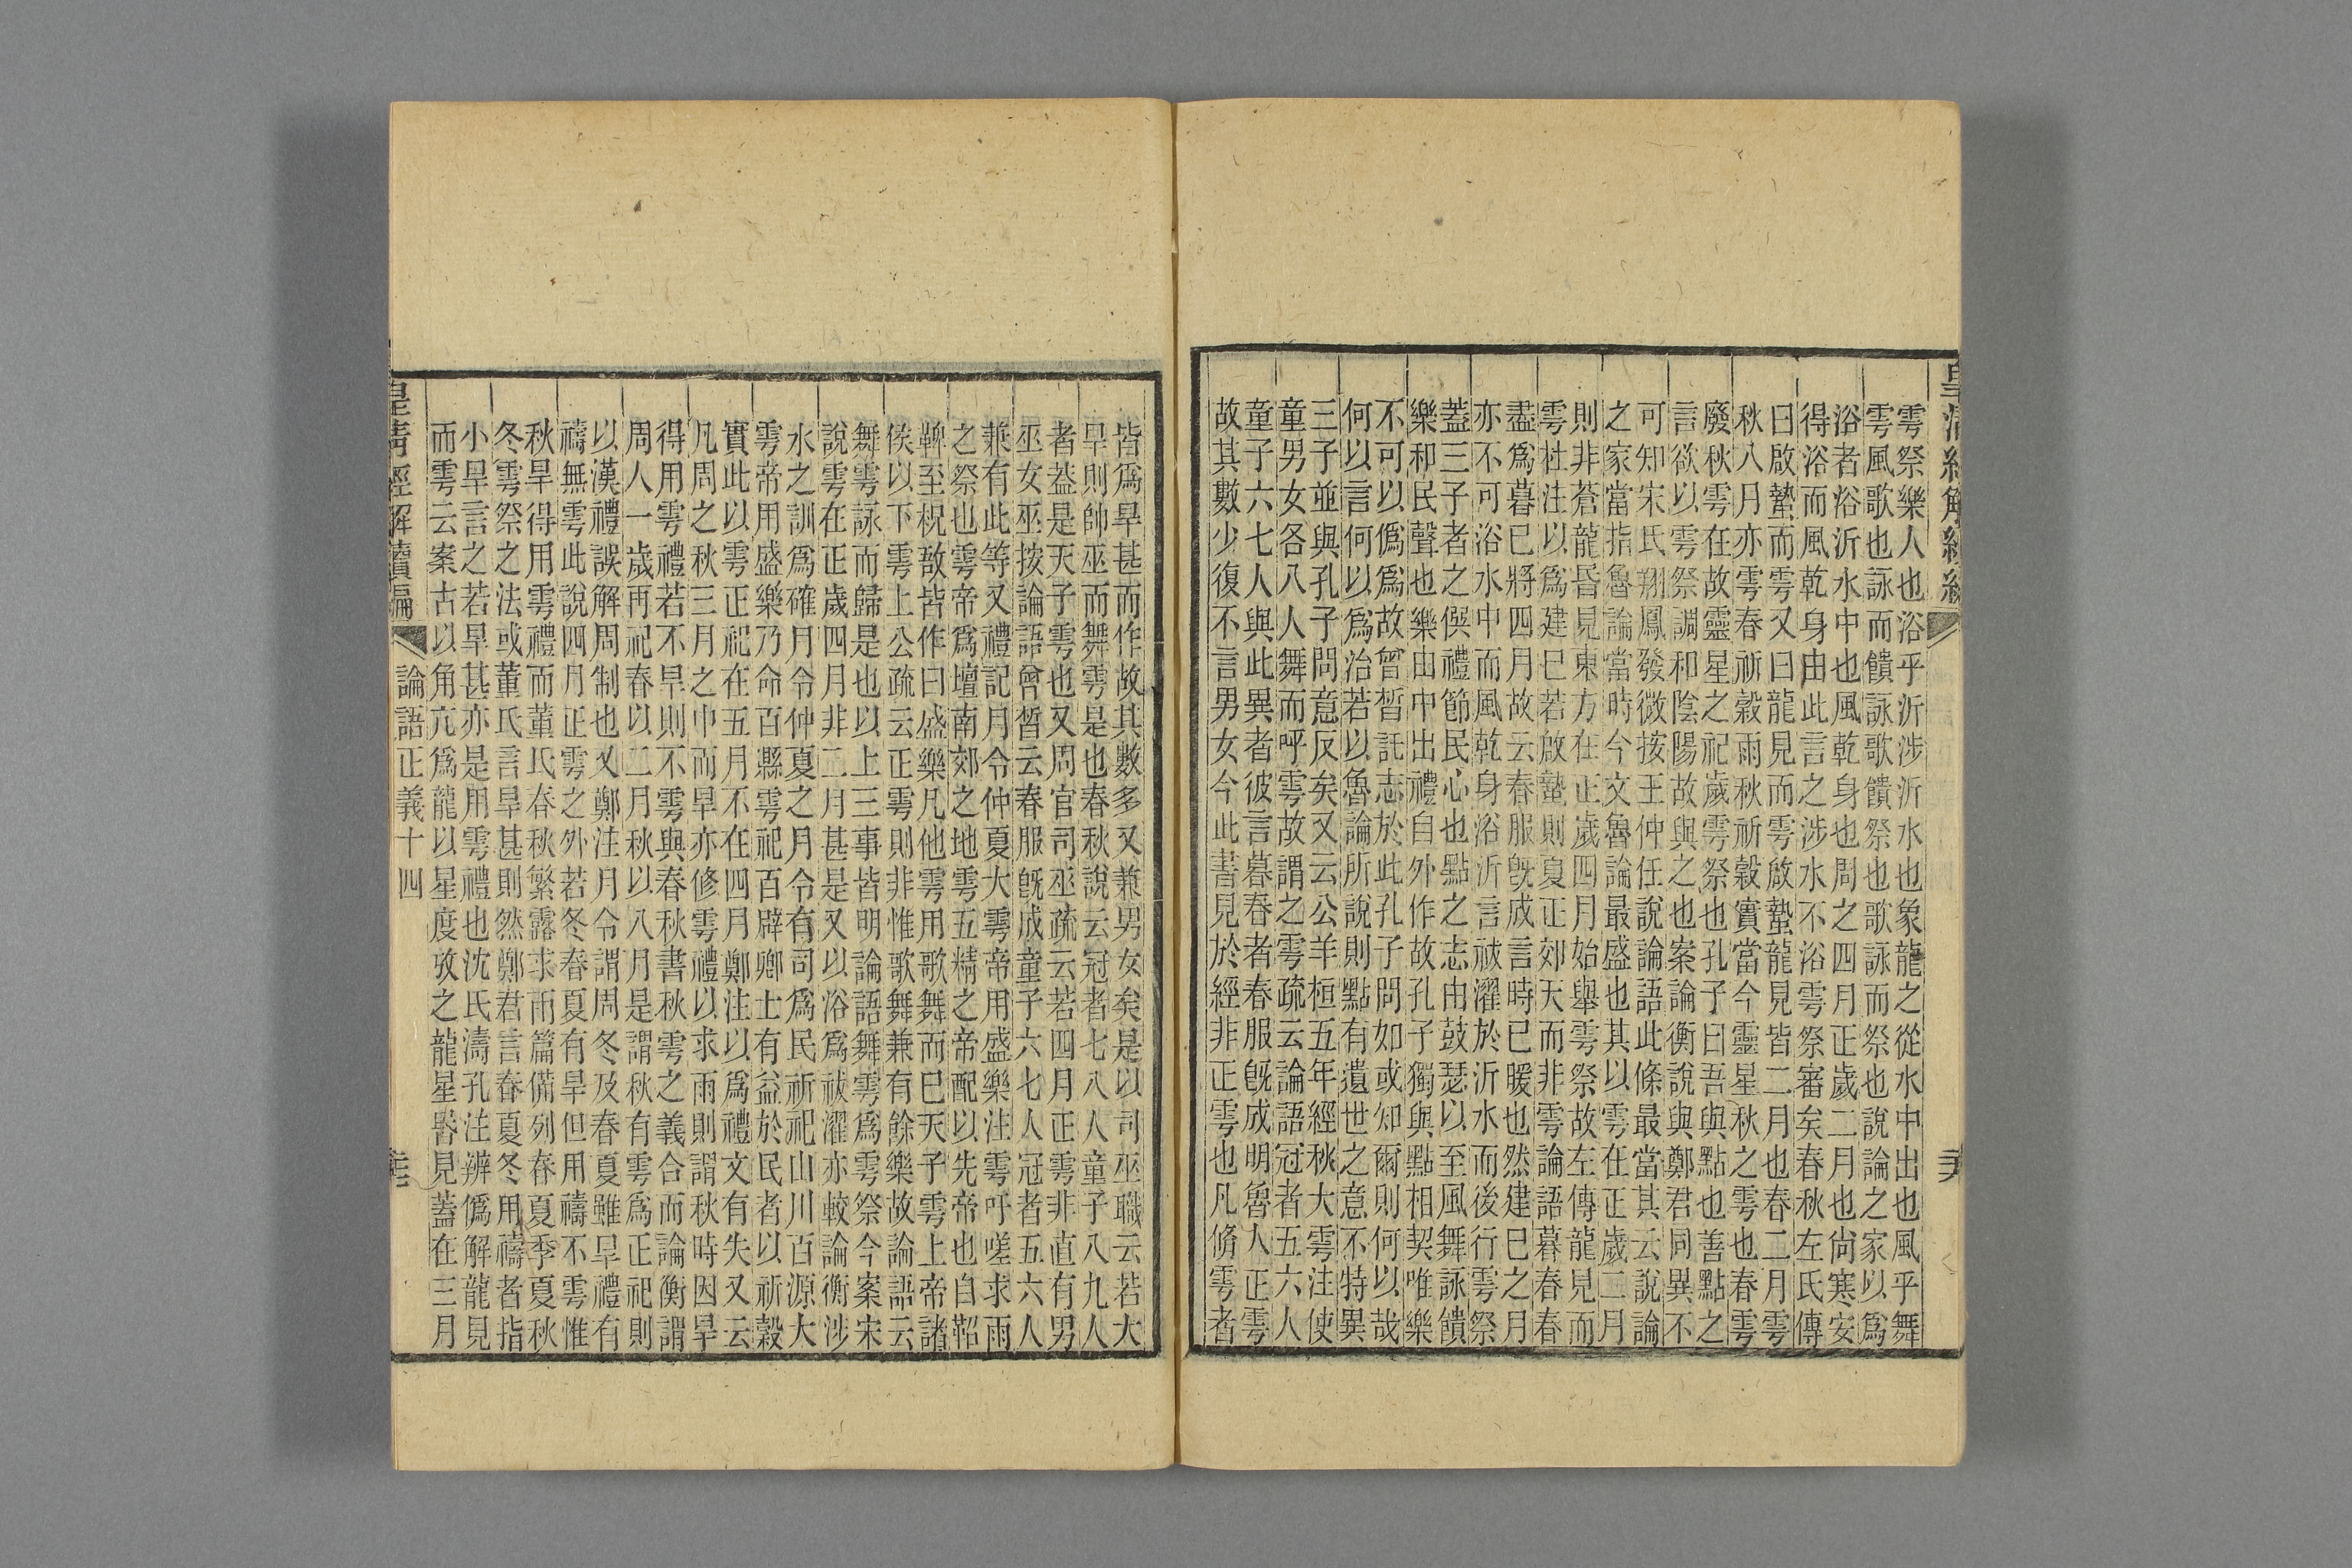 皇清經解續編
雩祭樂人也浴乎沂涉沂水也象龍之從水中出也風乎舞
雩風歌也詠而饋詠歌饋祭也歌詠而祭也說論之家以爲
浴者浴沂水中也風乾身也周之四月正歲二月也尙寒安
得浴而風乾身由此言之涉水不浴雩祭審矣春秋左氏傳
曰啟蟄而雩又曰龍見而雩啟蟄龍見皆二月也春二月雩
秋八月亦雩春祈穀雨秋祈穀實當今靈星秋之雩也春雩
廢秋雩在故靈星之祀歲雩祭也孔子曰吾與點也善點之
言欲以雩祭調和陰陽故與之也案論衡說與鄭君同異不
可知宋氏翔鳳發微按王仲任說論語此條最當其云說論
之家當指魯論當時今文魯論最盛也其以雩在正歲二月
則非蒼龍昏見東方在正歲四月始舉雩祭故左傳龍見而
雩杜注以爲建巳若啟蟄則夏正郊天而非雩論語暮春春
盡爲暮巳將四月故云春服旣成言時已暖也然建巳之月
亦不可浴水中而風乾身浴沂言祓濯於沂水而後行雩祭
蓋三子者之僎禮節民心也點之志由鼓瑟以至風舞詠饋
樂和民聲也樂由中出禮自外作故孔子獨與點相契唯樂
不可以僞爲故曾晳託志於此孔子問如或知爾則何以哉
何以言何以爲治若以魯論所說則點有遺世之意不特異
三子並與孔子問意反矣又云公羊桓五年經秋大雩注使
童男女各八人舞而呼雩故謂之雩疏云論語冠者五六人
童子六七人與此異者彼言暮春者春服旣成明魯人正雩
故其數少復不言男女今此書見於經非正雩也凡脩雩者
皆爲旱甚而作故其數多又兼男女矣是以司巫職云若大
旱則帥巫而舞雩是也春秋說云冠者七八人童子八九人
者蓋是天子雩也又周官司巫疏云若四月正雩非直有男
巫女巫按論語曾晳云春服旣成童子六七人冠者五六人
兼有此等又禮記月令仲夏大雩帝用盛樂注雩吁嗟求雨
之祭也雩帝爲壇南郊之地雩五精之帝配以先帝也自鞀
鞞至柷敔皆作曰盛樂凡他雩用歌舞而巳天子雩上帝諸
侯以下雩上公疏云正雩則非惟歌舞兼有餘樂故論語云
舞雩詠而歸是也以上三事皆明論語舞雩爲雩祭今案宋
說雩在正歲四月非二月甚是又以浴爲祓濯亦較論衡涉
水之訓爲確月令仲夏之月令有司爲民祈祀山川百源大
雩帝用盛樂乃命百縣雩祀百辟卿士有益於民者以祈穀
實此以雩正祀在五月不在四月鄭注以爲禮文有失又云
凡周之秋三月之中而旱亦修雩禮以求雨則謂秋時因旱
得用雩禮若不旱則不雩與春秋書秋雩之義合而論衡謂
周人一歲再祀春以二月秋以八月是謂秋有雩爲正祀則
以漢禮誤解周制也又鄭注月令謂周冬及春夏雖旱禮有
禱無雩此說四月正雩之外若冬春夏有旱但用禱不雩惟
秋旱得用雩禮而董氏春秋繁露求雨篇備列春夏季夏秋
冬雩祭之法或董氏言旱甚則然鄭君言春夏冬用禱者指
小旱言之若旱甚亦是用雩禮也沈氏濤孔注辨僞解龍見
而雩云案古以角亢爲龍以星度攷之龍星昬見蓋在三月
皇清經解續編 論語正義十四